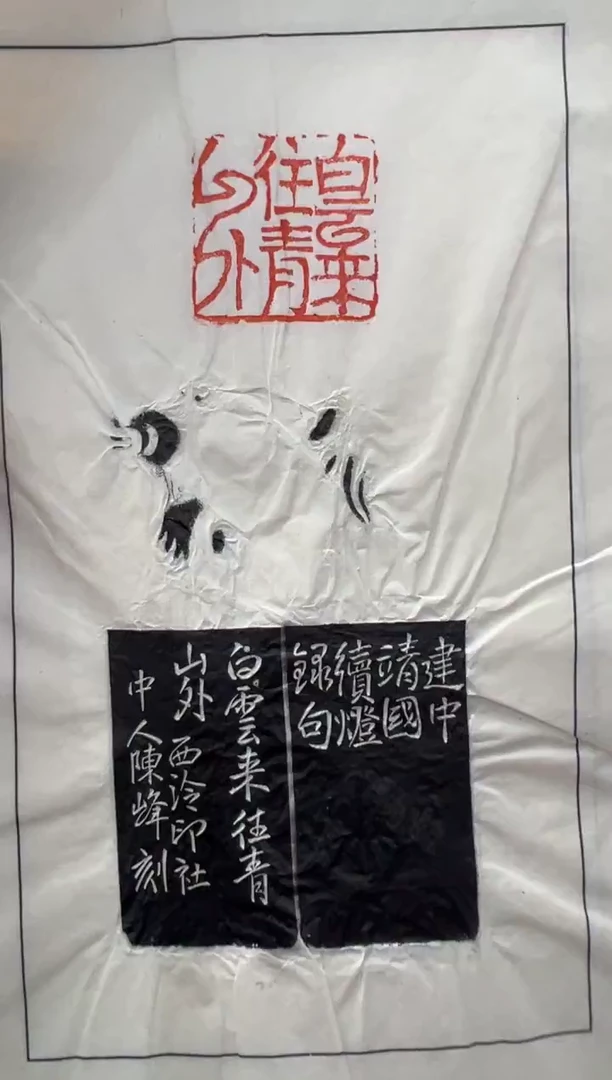 白雲來
往青
山外
建中
靖國
續燈
録句
白雲来往青
山外 西泠印社
中人陳峰刻